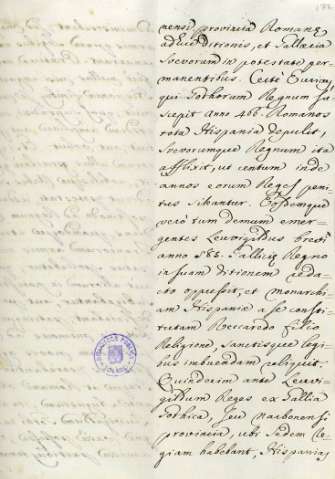 nensi provincia Romanę
aduc ditionis, et Gallæcia
Svevorum in potestate per-
manentibus. Certè Euricus,
qui Gothorum Regnum sus-
cepit anno 466. Romanos
tota Hispania depulit,
Svevorumque Regnum ita
afflixit, ut centum inde
annos eorum Reges peni-
tus sileantur. Eosdemque
verò tum demum emer-
gentes Leuvigildus
anno 585. Gallæcię Regno
in suam ditionem redac-
to oppressit, et monarchi-
am Hispaniæ a se consti-
tutam Reccaredo filio
Religione, Sanctisque legi-
bus imbuendam reliquit.
Quinderim ante Leuvi-
gildum Reges ex Gallia
Gothica, seu Narbonensi
provincia, ubi Sedem Re-
giam habebant, Hispanias